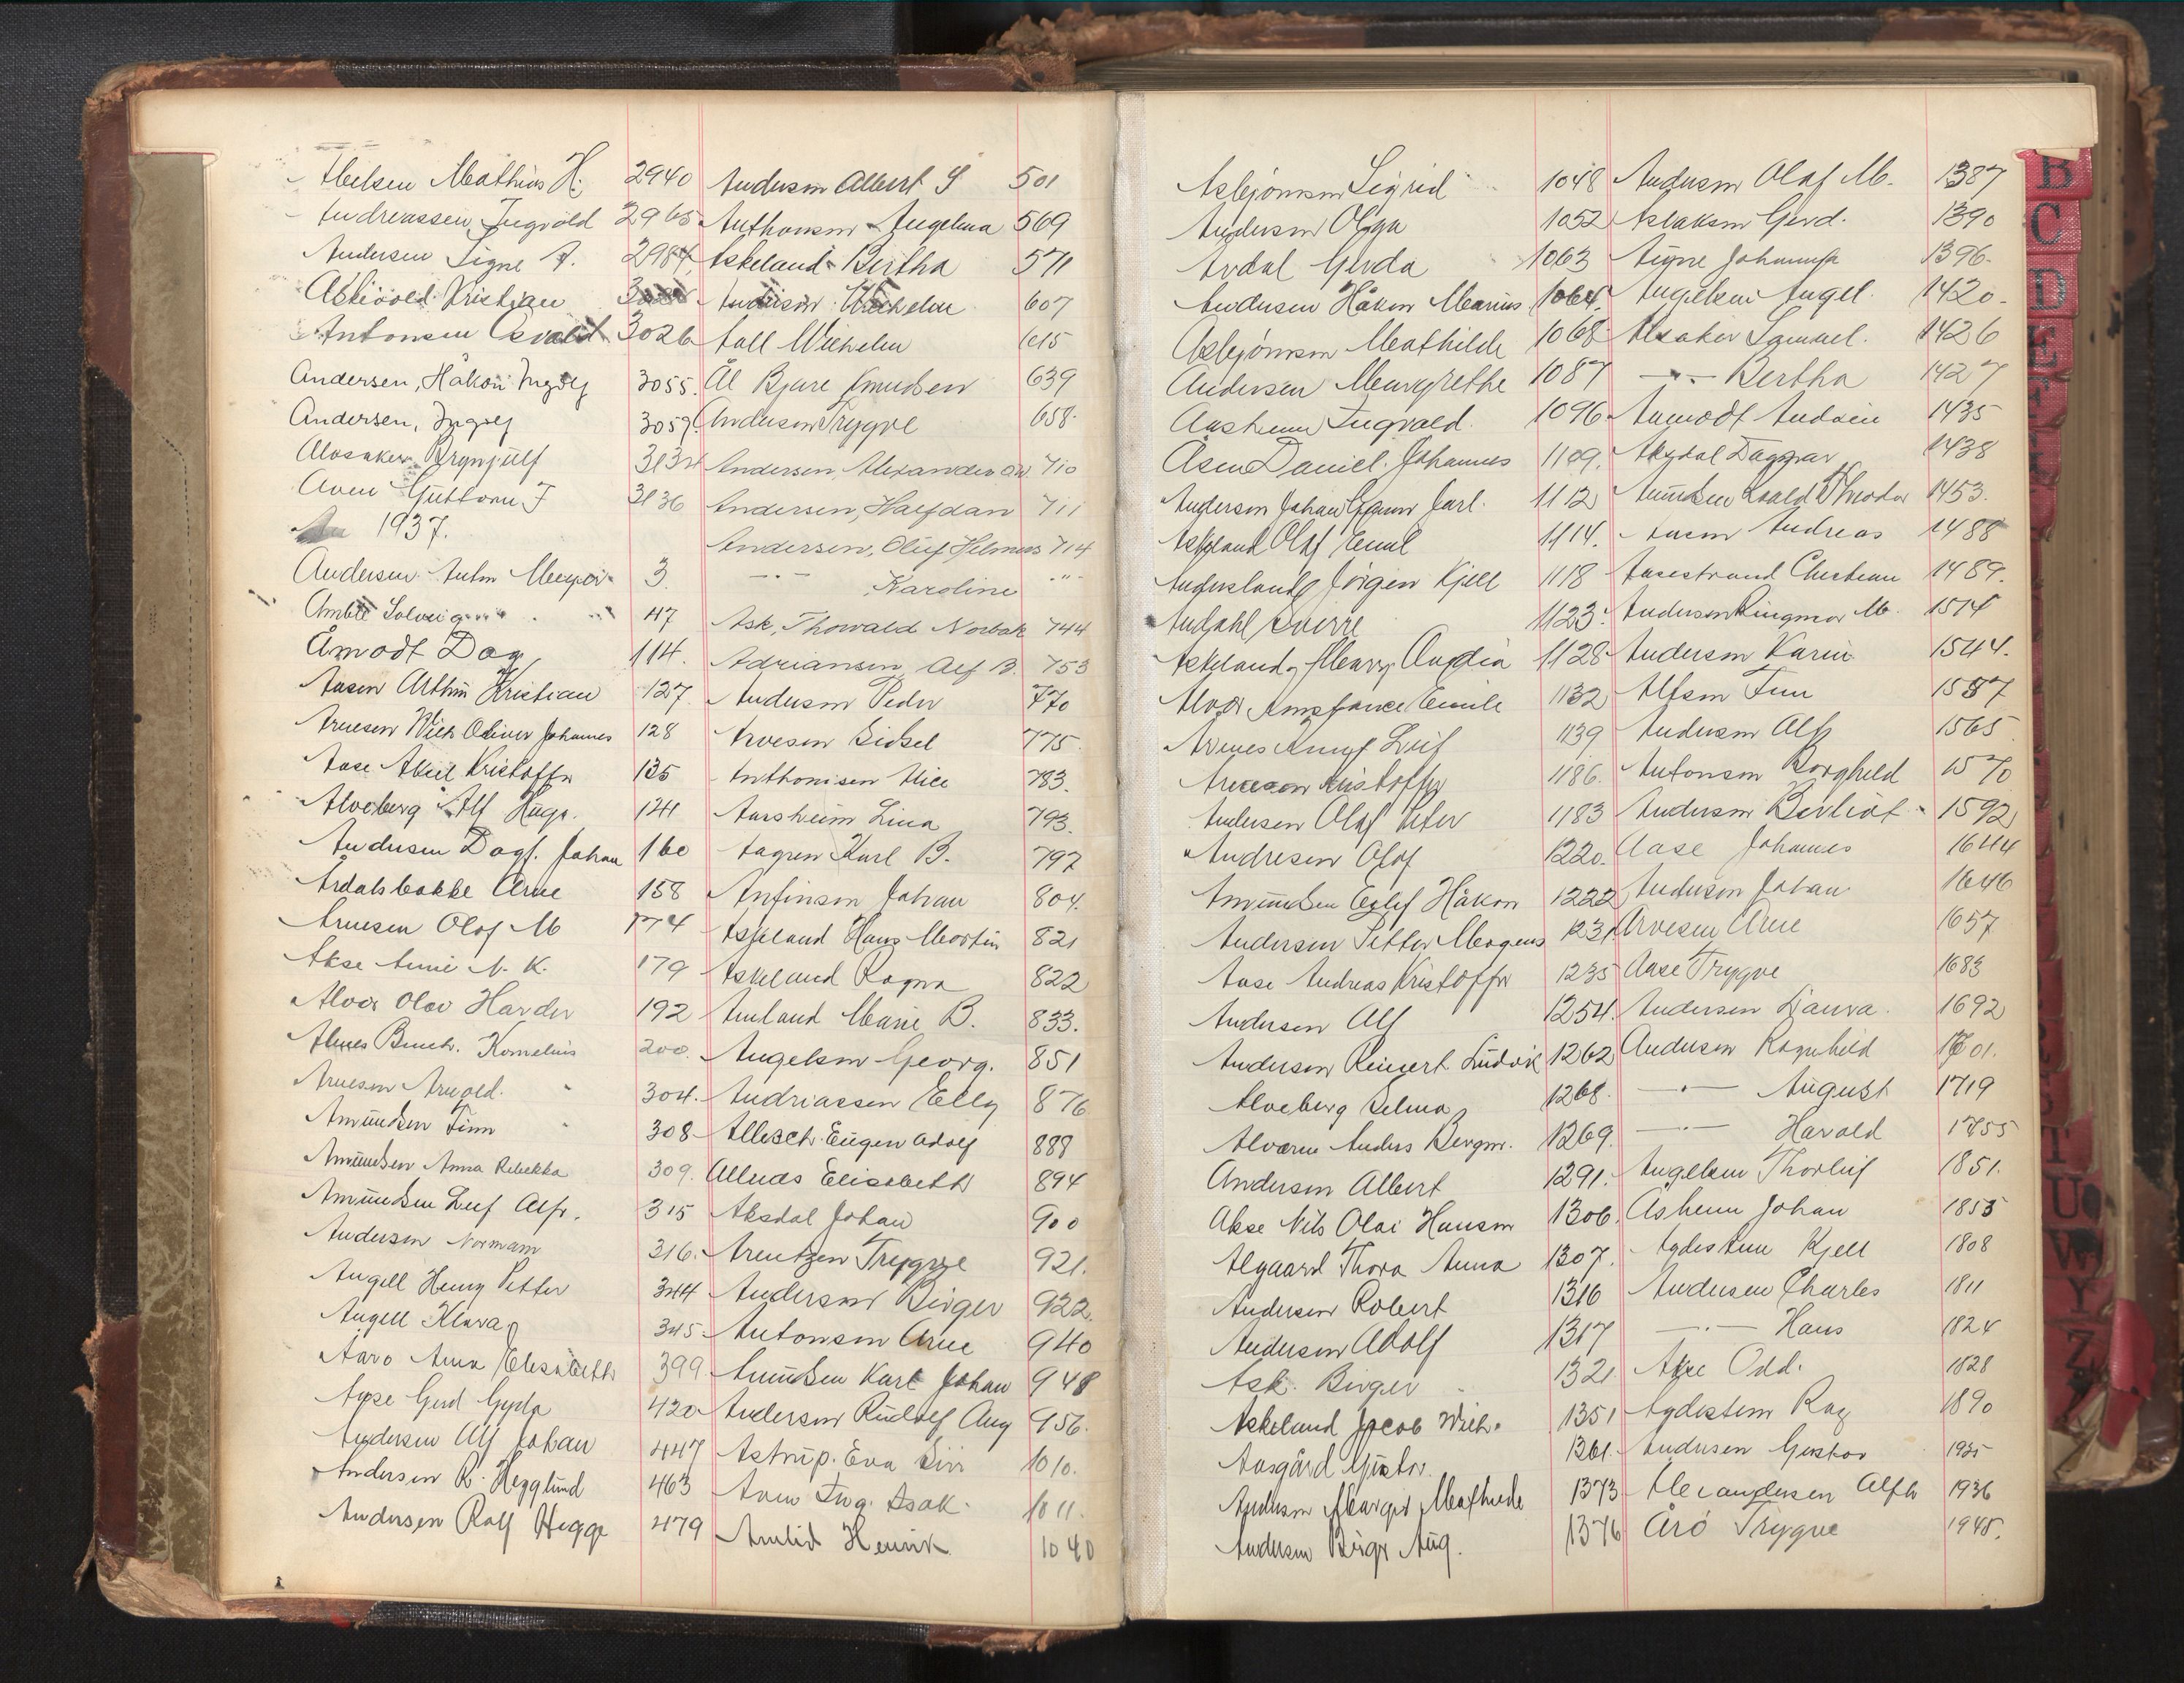 Mathias H. 2940
Andreassen, Ingvald 2965
Andersen Signe A. 2984
Kristian
Antonsen Osvald 3026
Andersen, Håkon Ingolf 3055.
Andersen, Ingolf 3057.
Alvsaker Brynjulf 3134
Aven Guttorm F 3136
1937.
Andersen Anton Meyer 3.
Solveig 47
Åmodt Dag 114.
Aasen Arthur Kristian 127
Arnesen Wilh Oliver Johannes 128
Aase Aksel Kristoffer 135
Alveberg Alf Hugo. 141
Andersen Dagf. Johan 160
Årdalsbakke Arne 158
Arnesen Olaf M 174
Akse Anne N. K. 179
Alver Olav Harder 192
Kornelius 200.
Arnesen Arnold. 304.
Amundsen Finn 308
Amundsen Anna Rebekka 309.
Amundsen Leif Alfr. 315
Andersen Normann 316.
Angell Henry Petter 344
Angell Klara 345
Aarø Anna Elisabeth 399
Gerd Gyda 420
Andersen Alf Johan 447
Andersen R. Hegglund 463
Andersen Rolf Hegge 479
Andersen Albert S 501
Anthonsen Angelina 569
Askeland Bertha 571
Andersen Wilhelm 607
Aall Wilhelm 615
Ål Bjarne Knudsen 639
Andersen Trygve 658.
Andersen, Alexander Ow. 710
Andersen, Halfdan 711
Andersen, Oluf Helmers 714
— · — Karoline — " —
Ask, Thorvald Norbak 744
Adriansen, Alf B. 753
Andersen Peder 770
Arvesen Sidsel 775.
Anthonisen Alice 783.
Aarsheim Lina 793.
Aagren Karl B. 797
Anfinsen Johan 804.
Askeland Hans Martin 821
Askeland Ragna 822
Amland Marie B. 833.
Angelsen Georg. 851
Andriassen Elly 876
Allesch. Eugen Adolf 888
Allnæs Elisabeth 894
Aksdal Johan 900
Arentzen Trygve 921.
Andersen Birger 922.
Antonsen Arne 940
Amundsen Karl Johan 948
Andersen Rudolf Aug 956.
Astrup. Eva Siri 1010.
Aven Ing. Isak. 1011.
Amlid Henrik 1040
Asbjørnsen Sigrid 1048
Andersen Olga 1052
Årdal Gerda 1063
Andersen Håkon Marius 1064.
Asbjørnsen Mathilde 1068
Andersen Margrethe 1087
Aasheim Ingvald. 1096
Åsen Daniel. Johannes 1109.
Andersen Johan Jarl. 1112
Askeland Olaf Emil 1114.
Jørgen Kjell 1118
Sverre 1123.
Askeland, Mary Audia 1128
Alver Emilie 1132
Leif 1139
Kristoffer 1186.
Andersen Olaf Peter 1183
Andresen Olaf 1220.
Amundsen Eilif Håkon 1222
Andersen Petter Mogens 1231
Aase Andreas Kristoffer 1235
Andersen Alf 1254.
Andersen Reinert Ludvik 1262
Alveberg Selma 1268.
Anders Bergm. 1269.
Andersen Albert 1291.
Akse Nils Olai Hansen 1306.
Algaard Thora Anna 1307.
Andersen Robert 1316
Andersen Adolf 1317
Ask. Birger 1321
Askeland Jacob Wilh. 1351
Aasgård Gustav. 1361.
Andersen Margit Mathilde 1373
Andersen Birger Aug. 1376
Andersen Olaf M. 1387
Aslaksen Gerd. 1390
Johanna 1396.
Angelsen Angel. 1420.
Alsaker Samuel. 1426
— · — Bertha 1427
Aamodt Audun 1435
Aksdal Dagmar 1438
Amundsen Theodor 1453.
Aasen Andreas 1488
Aasestrand Christian 1489.
Andersen Ringmor M. 1514
Andersen Karin 1544.
Alfsen Finn 1557
Andersen Alf 1565
Antonsen Borghild 1570
Andersen Berliot 1592
Aase Johannes 1644
Andersen Johan 1646
Arvesen Arne 1657
Aase Trygve 1683
Andersen Laura. 1692
Andersen Ragnhild 1701.
— · — August 1719
— · — Harald 1755
Angelsen Thorleif 1851.
Åsheim Johan 1855
Kjell 1808
Andersen Charles 1811
— · — Hans 1824
Odd. 1828
1890
Andersen Gustav 1935
Alexandersen Alfh 1936
Årø Trygve 1948.
B
C
D
E
F
T
U
W
Y
Z